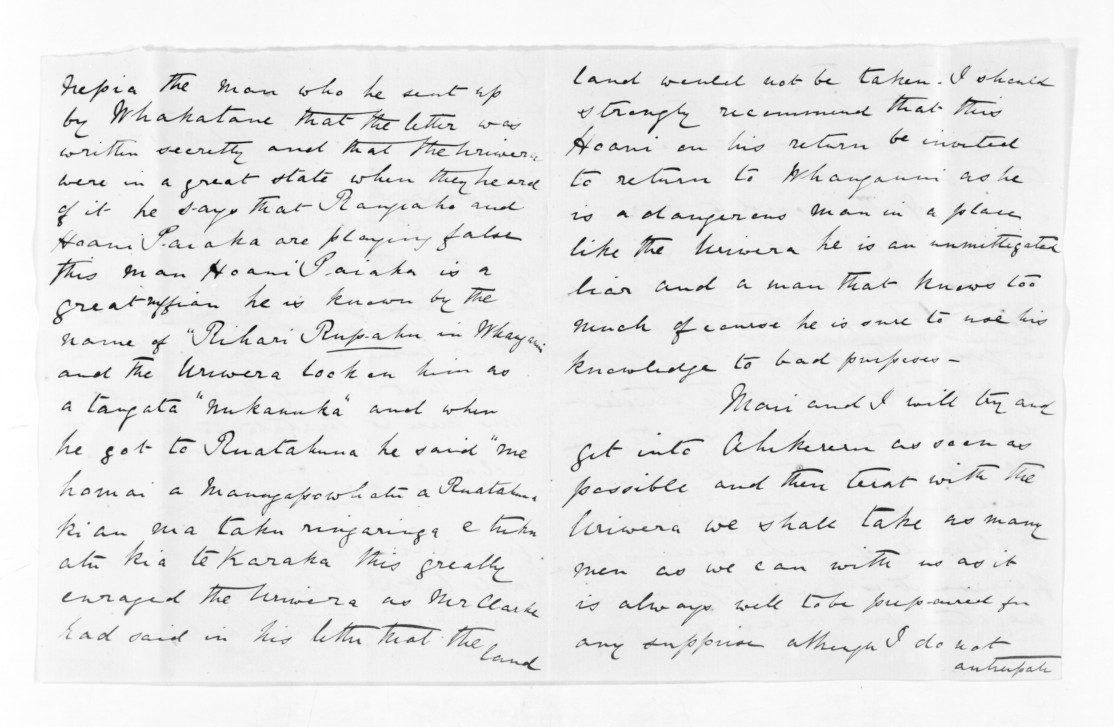 Nepia the man who he sent up
by Whakatane that the letter was
written secretly and that the Uriwera
were in a great state when they heard
of it he says that Rangiaho and
Hoani Paraka are playing false
this man Hoani Paraka is a
great ruffian he is known by the
name of "Rihari Rupahu in Whanganui
and the Uriwera look on him as
a tangata "nukanuka" and when
he got to Ruatahuna he said "me
homai a Maungapowhatu a Ruatahuna
ki au ma taku ringaringa e tuku
atu kia te Karaka this greatly
enraged the Uriwera as Mr Clarke
had said in his letter that the
land
land would not be taken. I should
strongly recommend that this
Hoani on his return be invited
to return to Whanganui as he
is a dangerous man in a place
like the Uriwera he is an unmittegated
liar and a man that knows too
much of course he is sure to use his
knowledge to bad purposes -
Mair and I will try and
get into Ahikereru as soon as
possible and then treat with the
Uriwera we shall take as many
men as we can with us as it
is always well to be prepaired for
any supprise although I do not
antisipate